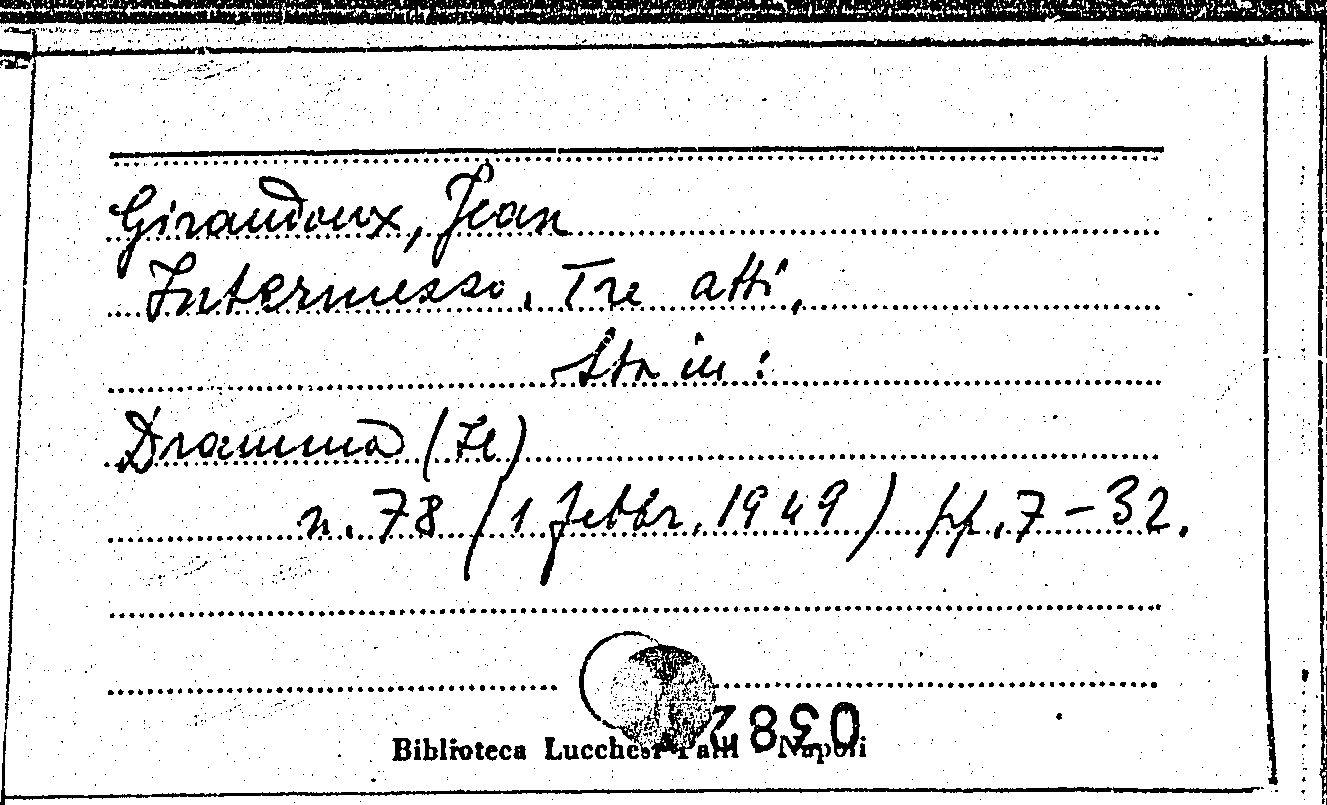 Giraudoux, Jean
Intermezzo. Tre atti.
Sta in:
Dramma (Il)
n. 78 (1 febbr. 1949) pp. 7-32.
Biblioteca Lucchesi-Palli - Napoli